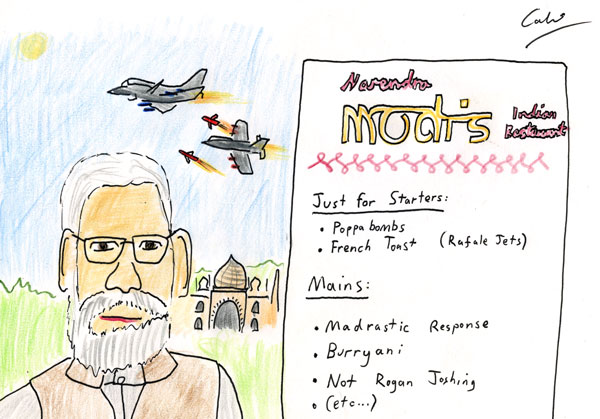 Calvi
Narendra
Modi's
Indian
Restaurant
Just for Starters:
• Poppabombs
• French Toast (Rafale Jets)
Mains:
• Madrastic Response
• Burryani
• Not Rogan Joshing
• (etc...)